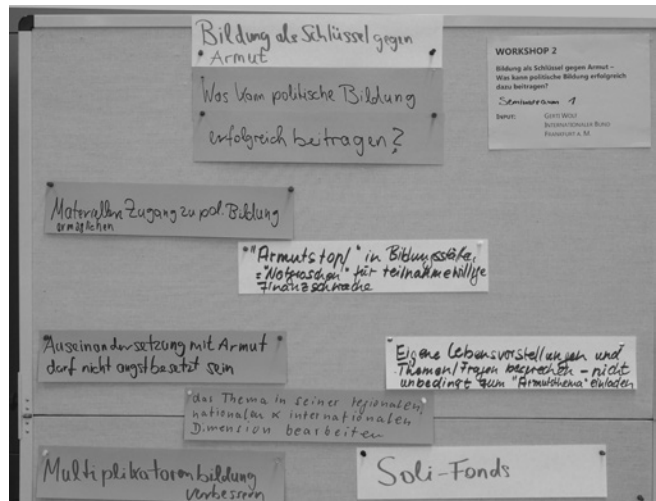 Bildung als Schlüssel gegen
Armut
Was kann politische Bildung
erfolgreich beitragen?
WORKSHOP 2
Bildung als Schlüssel gegen Armut –
Was kann politische Bildung erfolgreich
dazu beitragen?
Seminarraum 1
INPUT: GERTI WOLF
INTERNATIONALER BUND
FRANKFURT A. M.
Materiellen Zugang zu pol. Bildung
ermöglichen
"Armutstopf" in Bildungsstätte,
= "Notgroschen" für teilnahmewillige
Finanzschwache
Auseinandersetzung mit Armut
darf nicht angstbesetzt sein
Eigene Lebensvorstellungen und
Themen/Fragen besprechen – nicht
unbedingt zum "Armutsthema" einladen
das Thema in seiner regionalen,
nationalen & internationalen
Dimension bearbeiten
Multiplikatorenbildung
verbessern
Soli-Fonds